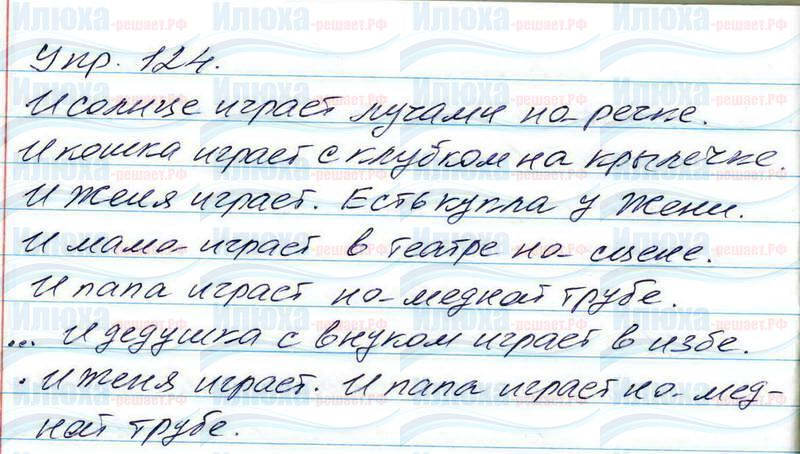 Упр. 124.
И солнце играет лучами на речке.
И кошка играет с клубком на крылечке.
И Женя играет. Есть кукла у Жени.
И мама играет в театре на сцене.
И папа играет на медной трубе.
... И дедушка с внуком играет в избе.
. И Женя играет. И папа играет на мед-
ной трубе.
Илюха-решает.РФ